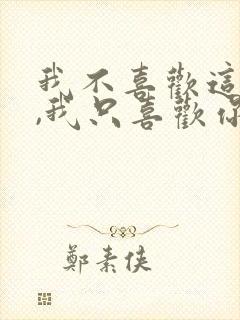 我不喜歡這
,我只喜歡你
鄭素俠